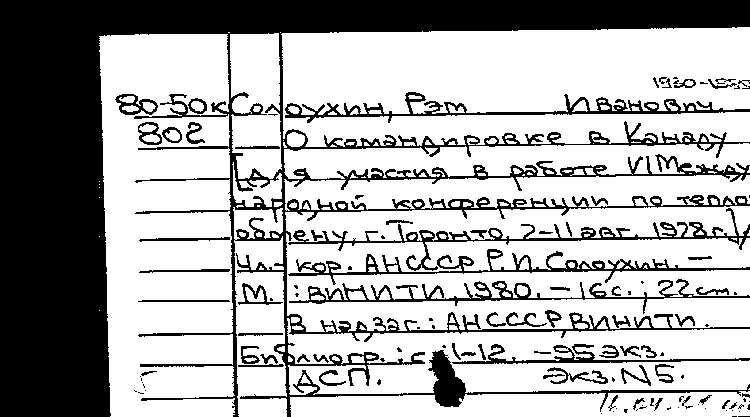 1930-1988
80-50к Солоухин, Рэм Иванович.
802 О командировке в Канаду
[для участия в работе VI Между
народной конференции по тепло
обмену, г. Торонто, 7-11 авг. 1978 г.] /
Чл.- кор. АН СССР Р.И. Солоухин. —
М. : ВИНИТИ, 1980. — 16 с. ; 22 см.
В надзаг. : АН СССР, ВИНИТИ.
Библиогр. : с. 11-12. — 95 экз.
ДСП. Экз. N5.